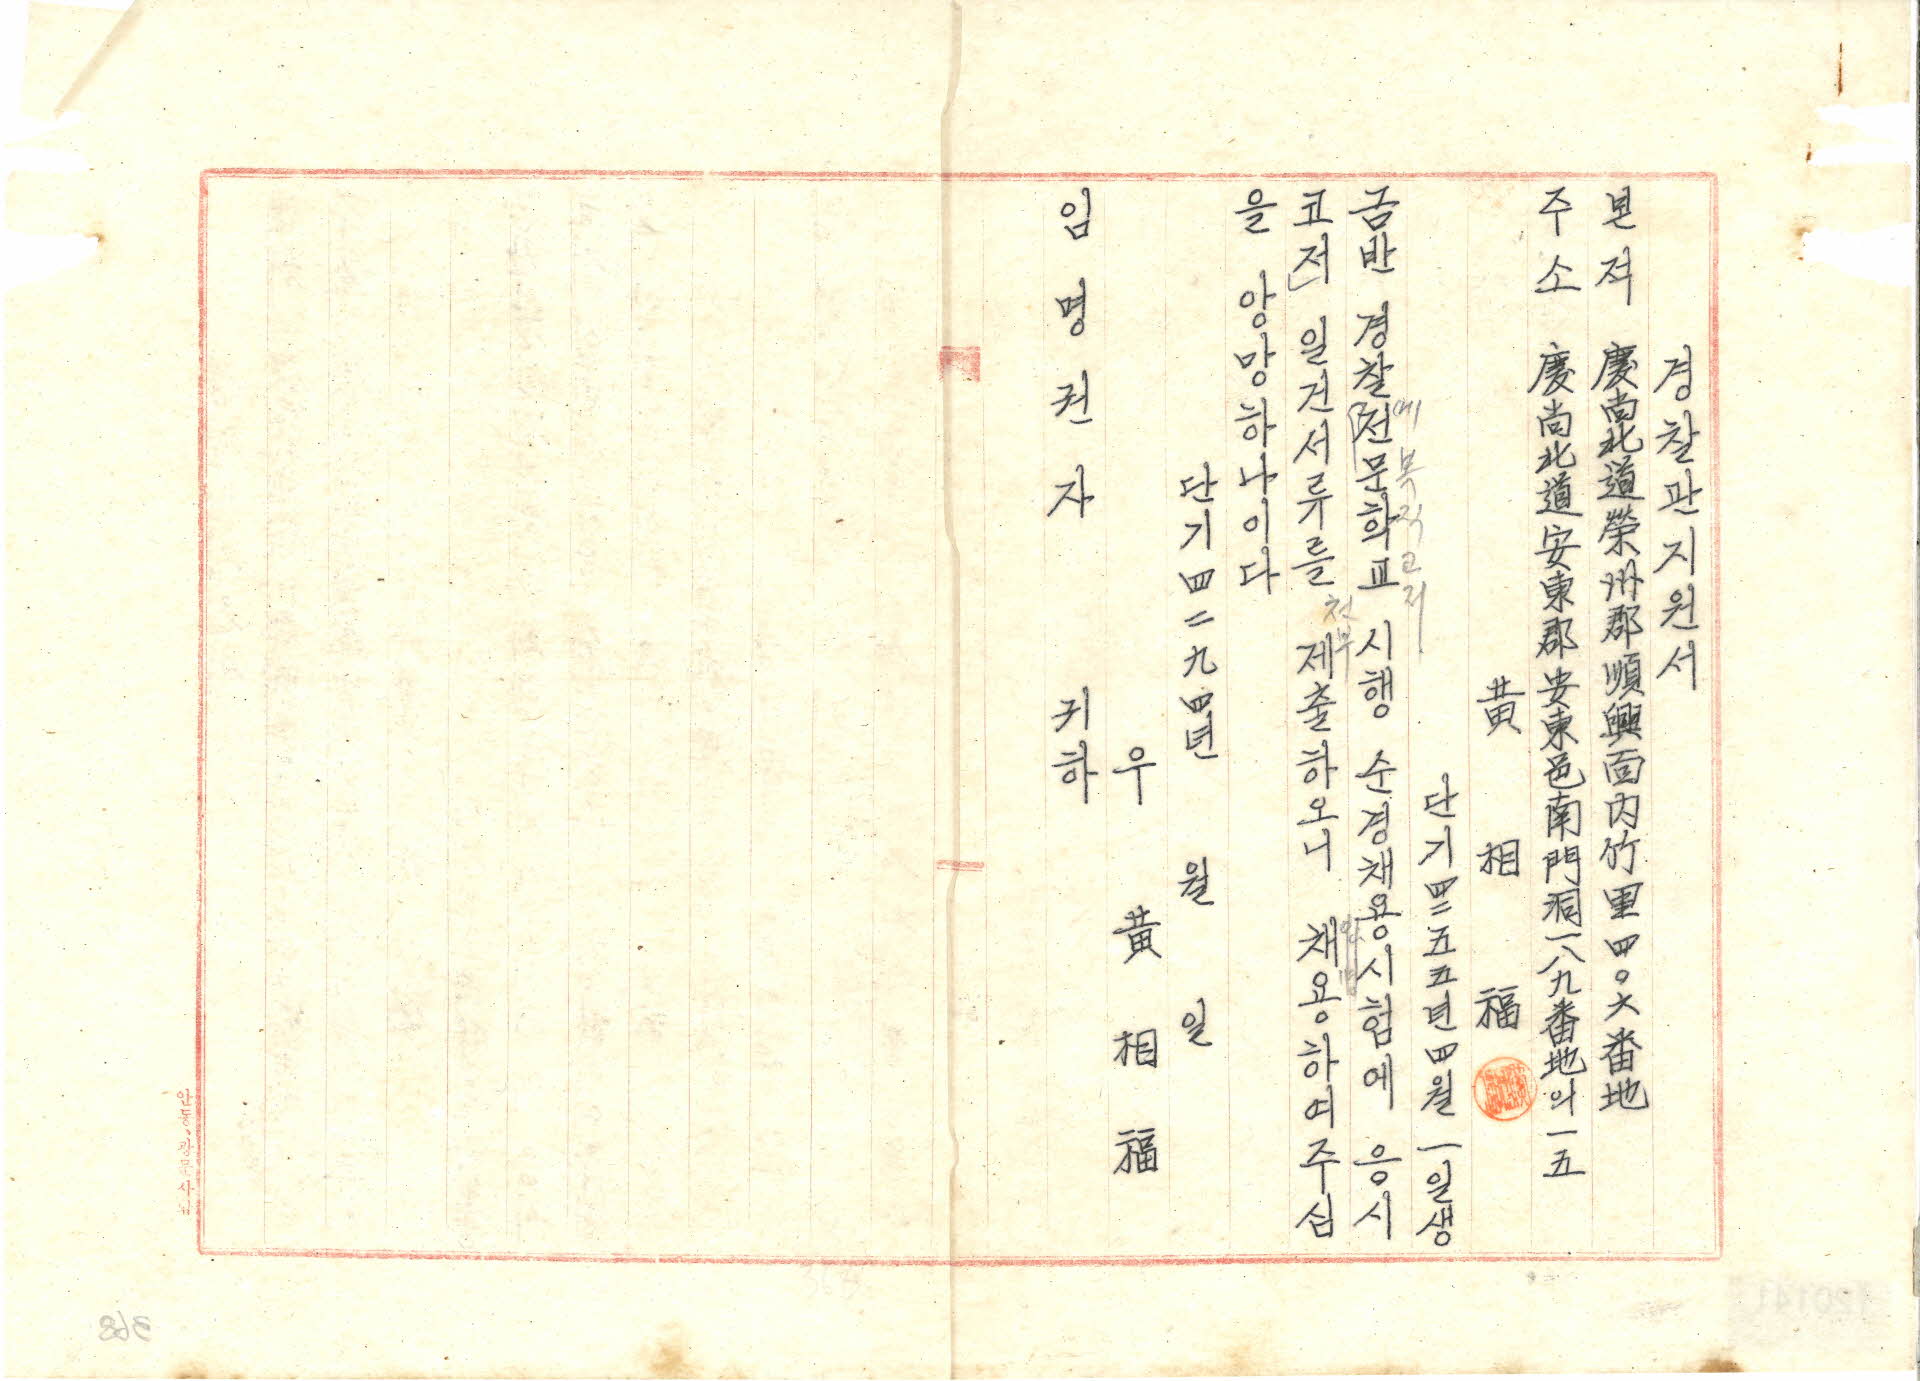 경찰관지원서
본적 慶尙北道榮州郡順興面內竹里四〇六番地
주소 慶尙北道安東郡安東邑南門洞一八九番地의一五
黃相福
단기四二五五년四월一일생
에 복직코저
금반 경찰「전문학교 시행 순경채용시험에 응시
첨부
코저」 일건서류를 제출하오니 채용하여주심
을 앙망하나이다
단기四二九四년 월 일
우 黃相福
임명권자 귀하
안동, 광문사납
368
120141